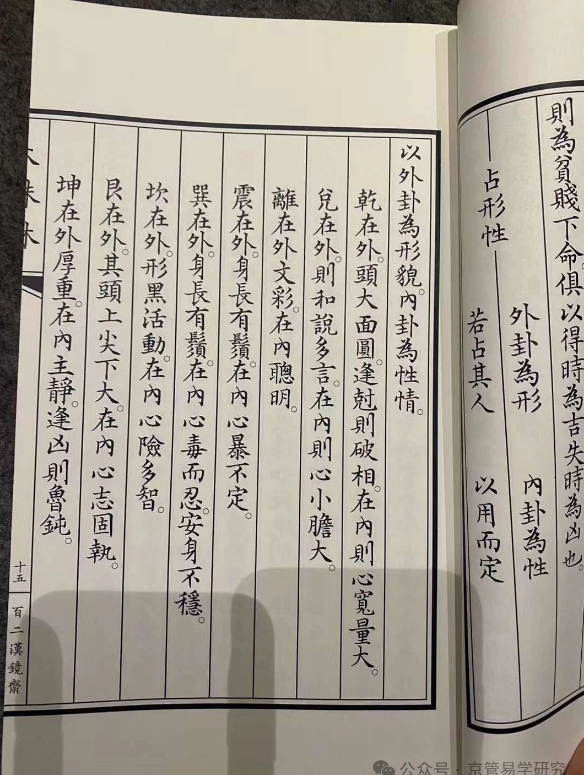 則為貧賤下命俱以得時為吉失時為凶也。
外卦為形 內卦為性
占形性
若占其人 以用而定
以外卦為形貌。內卦為性情。
乾在外。頭大面圓。逢尅則破相。在內則心寬量大。
兌在外。則和說多言。在內則心小膽大。
離在外文彩。在內聰明。
震在外。身長有鬚。在內心暴不定。
巽在外。身長有鬚。在內心毒而忍。安身不穩。
坎在外。形黑活動。在內心險多智。
艮在外。其頭上尖下大。在內心志固執。
坤在外厚重。在內主靜。逢凶則魯鈍。
十五
百二漢鏡齋
公众号·京管易学研究